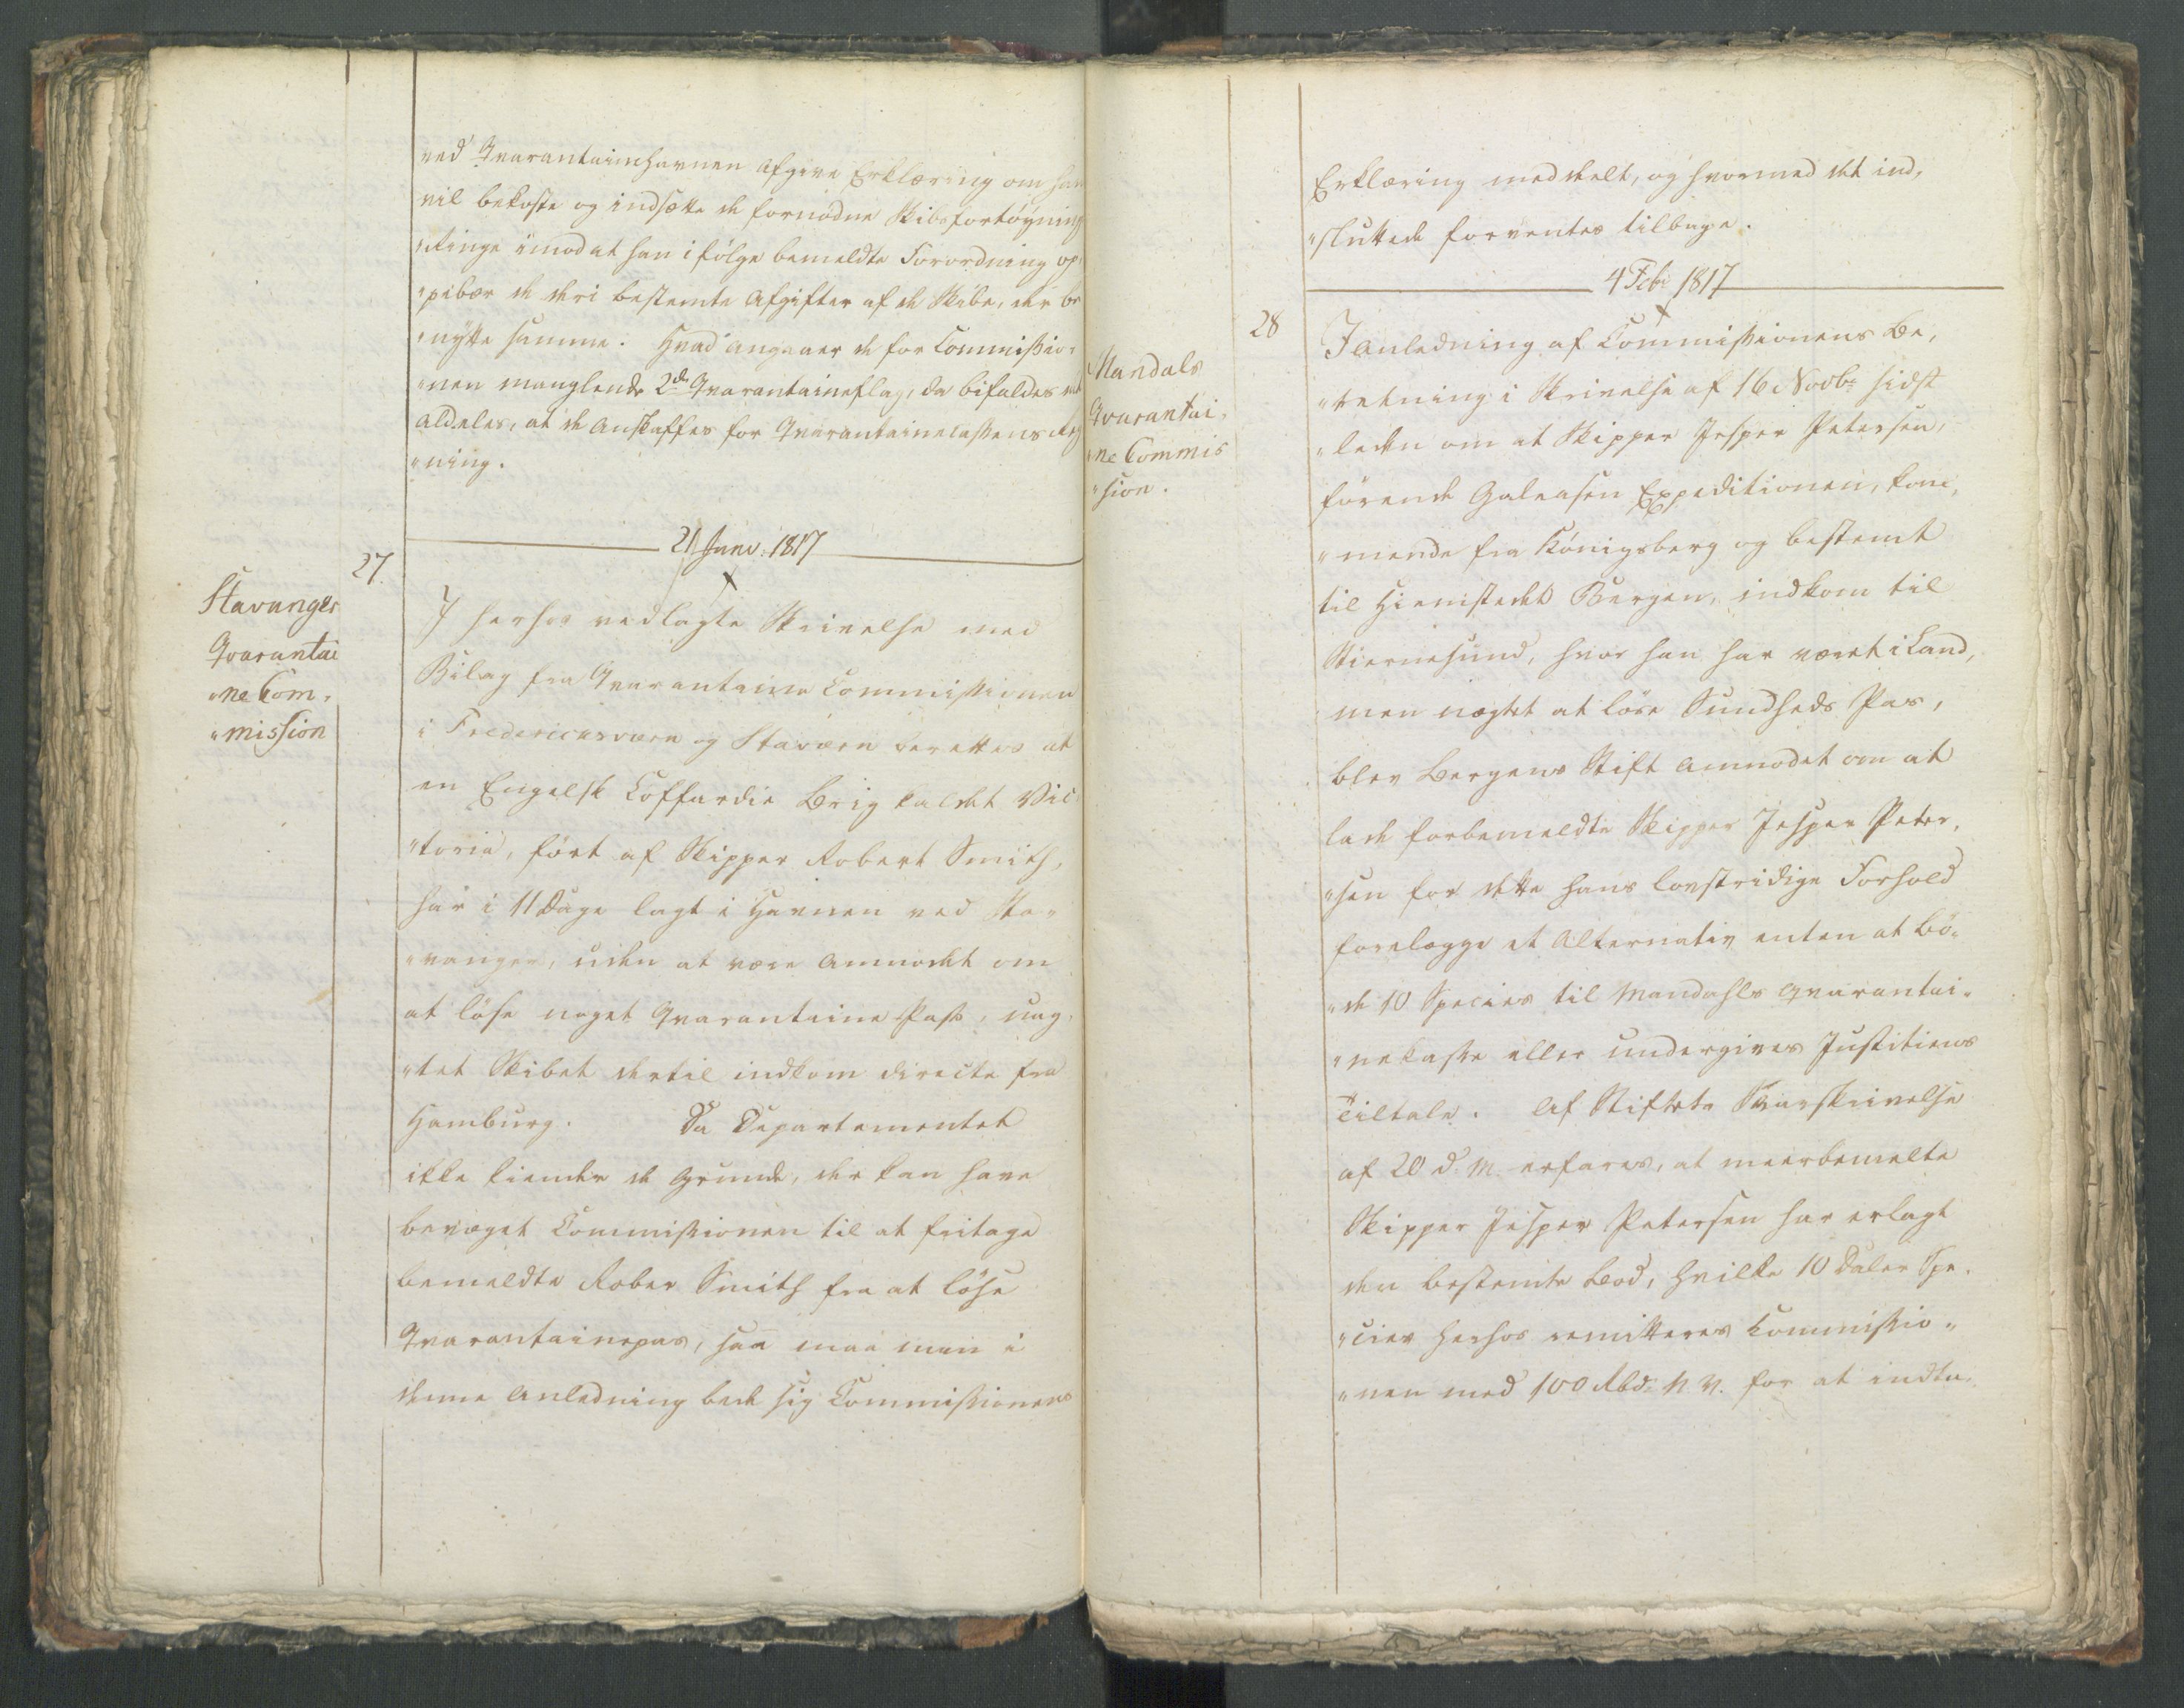 ved Qvarantainehavnen afgive Erklæring om han
vil bekoste og indsætte de fornødne Skibsfortøynings
"Ringe imod at han i følge bemeldte Forordning op,
"pebær de deri bestemte Afgifter af de Skibe, der be
"nytte samme. Hvad angaaer de for Commissio,
"nen manglende 2de Qvarantaineflag, da bifaldes
aldeles, at de anskaffes for Qvarantainecassens Reg
"ning.
21 Janv: 1817
27.
Stavanger
Qvarantai
"ne Com,
"mission
I herhos vedlagte Skrivelse med
Bilag fra Qvarantaine Commissionen
i Fredericksværn og Staværn berettes at
en Engelsk Coffardie Brig kaldet Vic,
"toria, ført af Skipper Robert Smith,
har i 11 Dage lagt i Havnen ved Sta,
"vanger, uden at være anmodet om
at løse noget Qvarantaine Pass, uag,
"tet Skibet dertil indkom directe fra
Hamburg. Da Departementet
ikke kiender de Grunde, der kan have
bevæget Commissionen til at fritage
bemeldte Rober Smith fra at løse
Qvarantainepas, saa maa man i
denne Anledning bede sig Commissionens
Erklæring meddeelt, og hvormed det ind,
"sluttede forventes tilbage.
4 Feb: 1817
28
Mandals
Qvarantai,
"ne Commis
"sion.
I Anledning af Commissionens Be,
"retning i Skrivelse af 16 Novbr sidst
"leden om at Skipper Jesper Petersen,
førende Galeasen Expeditionen, kom,
"mende fra Königsberg og bestemt
til Hiemstedet Bergen, indkom til
Stiernesund, hvor han har været i Land,
men nægtet at løse Sundheds Pas,
blev Bergens Stift anmodet om at
lade forbemeldte Skipper Jesper Peter,
"sen for dette hans lovstridige Forhold
forelægge et Alternativ enten at bø,
"de 10 Species til Mandahls Qvarantai,
"nekasse eller undergives Justitiens
Tiltale. Af Stiftets Svarskrivelse
af 20 d. M. erfares, at meerbemelte
Skipper Jesper Petersen har erlagt
den bestemte Bod, hvilke 10 Daler Spe,
"cier herhos remitteres Commissio,
"nen med 100 Rbd. N. V. for at indta,